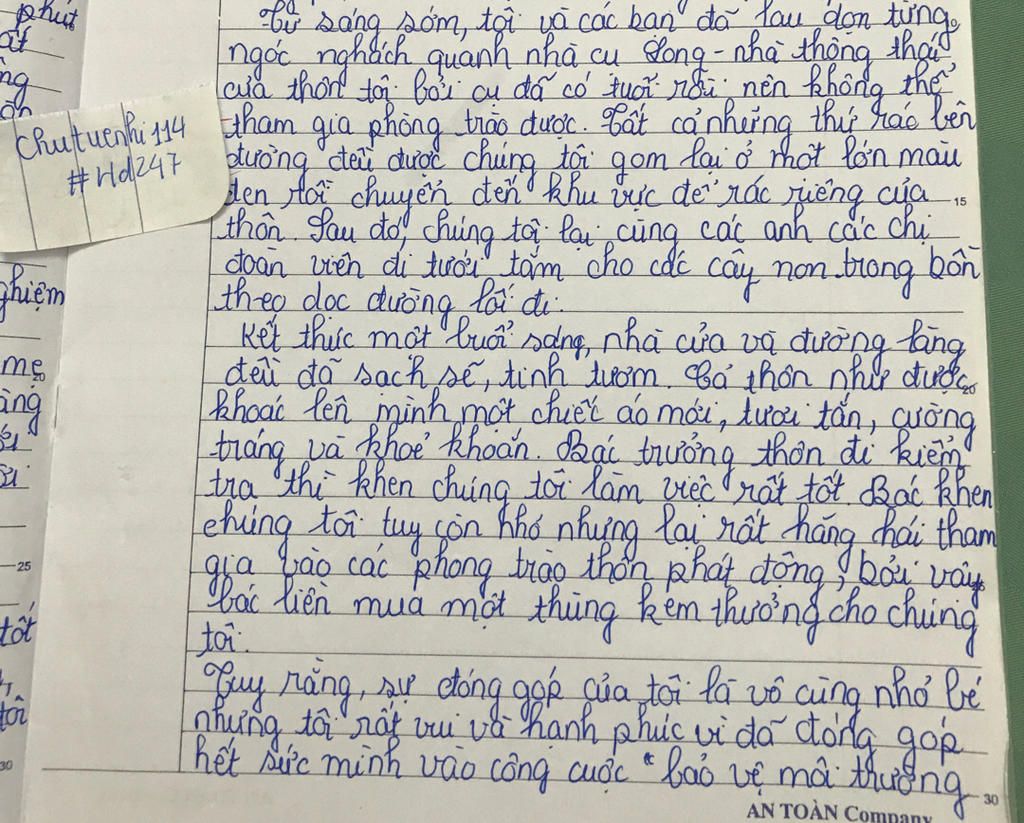 phút
ất
ng
ôn
chutuenhi114
#Hd247
ghiệm
mẹ
20
àng
25
tốt
tôi
30
Từ sáng sớm, tôi và các bạn đã lau dọn từng
ngóc nghách quanh nhà cụ Song - nhà thông thái
của thôn tôi bởi cụ đã có tuổi rồi nên không thể
tham gia phòng trào được. Tất cả những thứ rác bên
đường đều được chúng tôi gom lại ở một lớn màu
đen rồi chuyển đến khu vực để rác riêng của
15
thôn. Sau đó, chúng tôi lại cùng các anh các chị
đoàn viên đi tưới tắm cho các cây non trong bồn
theo dọc đường lối đi.
Kết thúc một buổi sáng, nhà cửa và đường làng
đều đã sạch sẽ, tinh tươm. Cả thôn như được
20
khoác lên mình một chiếc áo mới, tươi tắn, cường
tráng và khoẻ khoắn. Bác trưởng thôn đi kiểm
tra thì khen chúng tôi làm việc rất tốt. Bác khen
chúng tôi tuy còn nhỏ nhưng lại rất hăng hái tham
gia vào các phong trào thôn phát động, bởi vậy
bác liền mua một thùng kem thưởng cho chúng
tôi.
Tuy rằng, sự đóng góp của tôi là vô cùng nhỏ bé
nhưng tôi rất vui và hạnh phúc vì đã đóng góp
hết sức mình vào công cuộc "bảo vệ môi thường
30
AN TOÀN Company